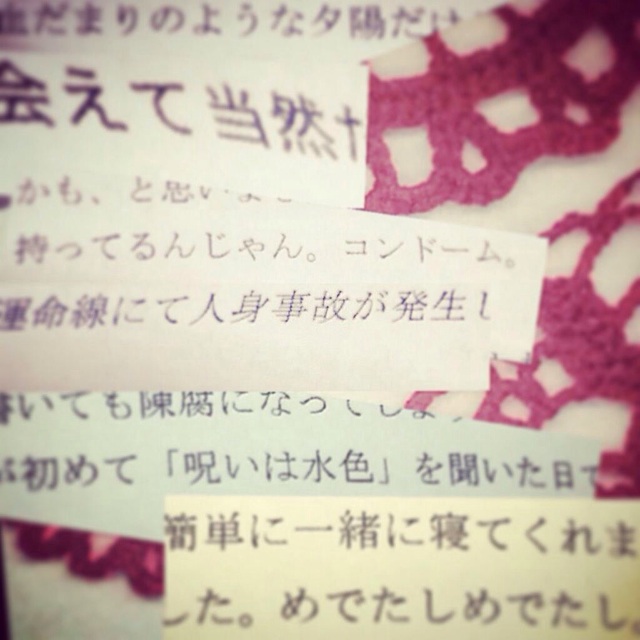 血だまりのような夕陽だけ
会えて当然
かも、と思いま
持ってるんじゃん。コンドーム。
運命線にて人身事故が発生し
書いても陳腐になってしまう
が初めて「呪いは水色」を聞いた日
簡単に一緒に寝てくれま
した。めでたしめでたし